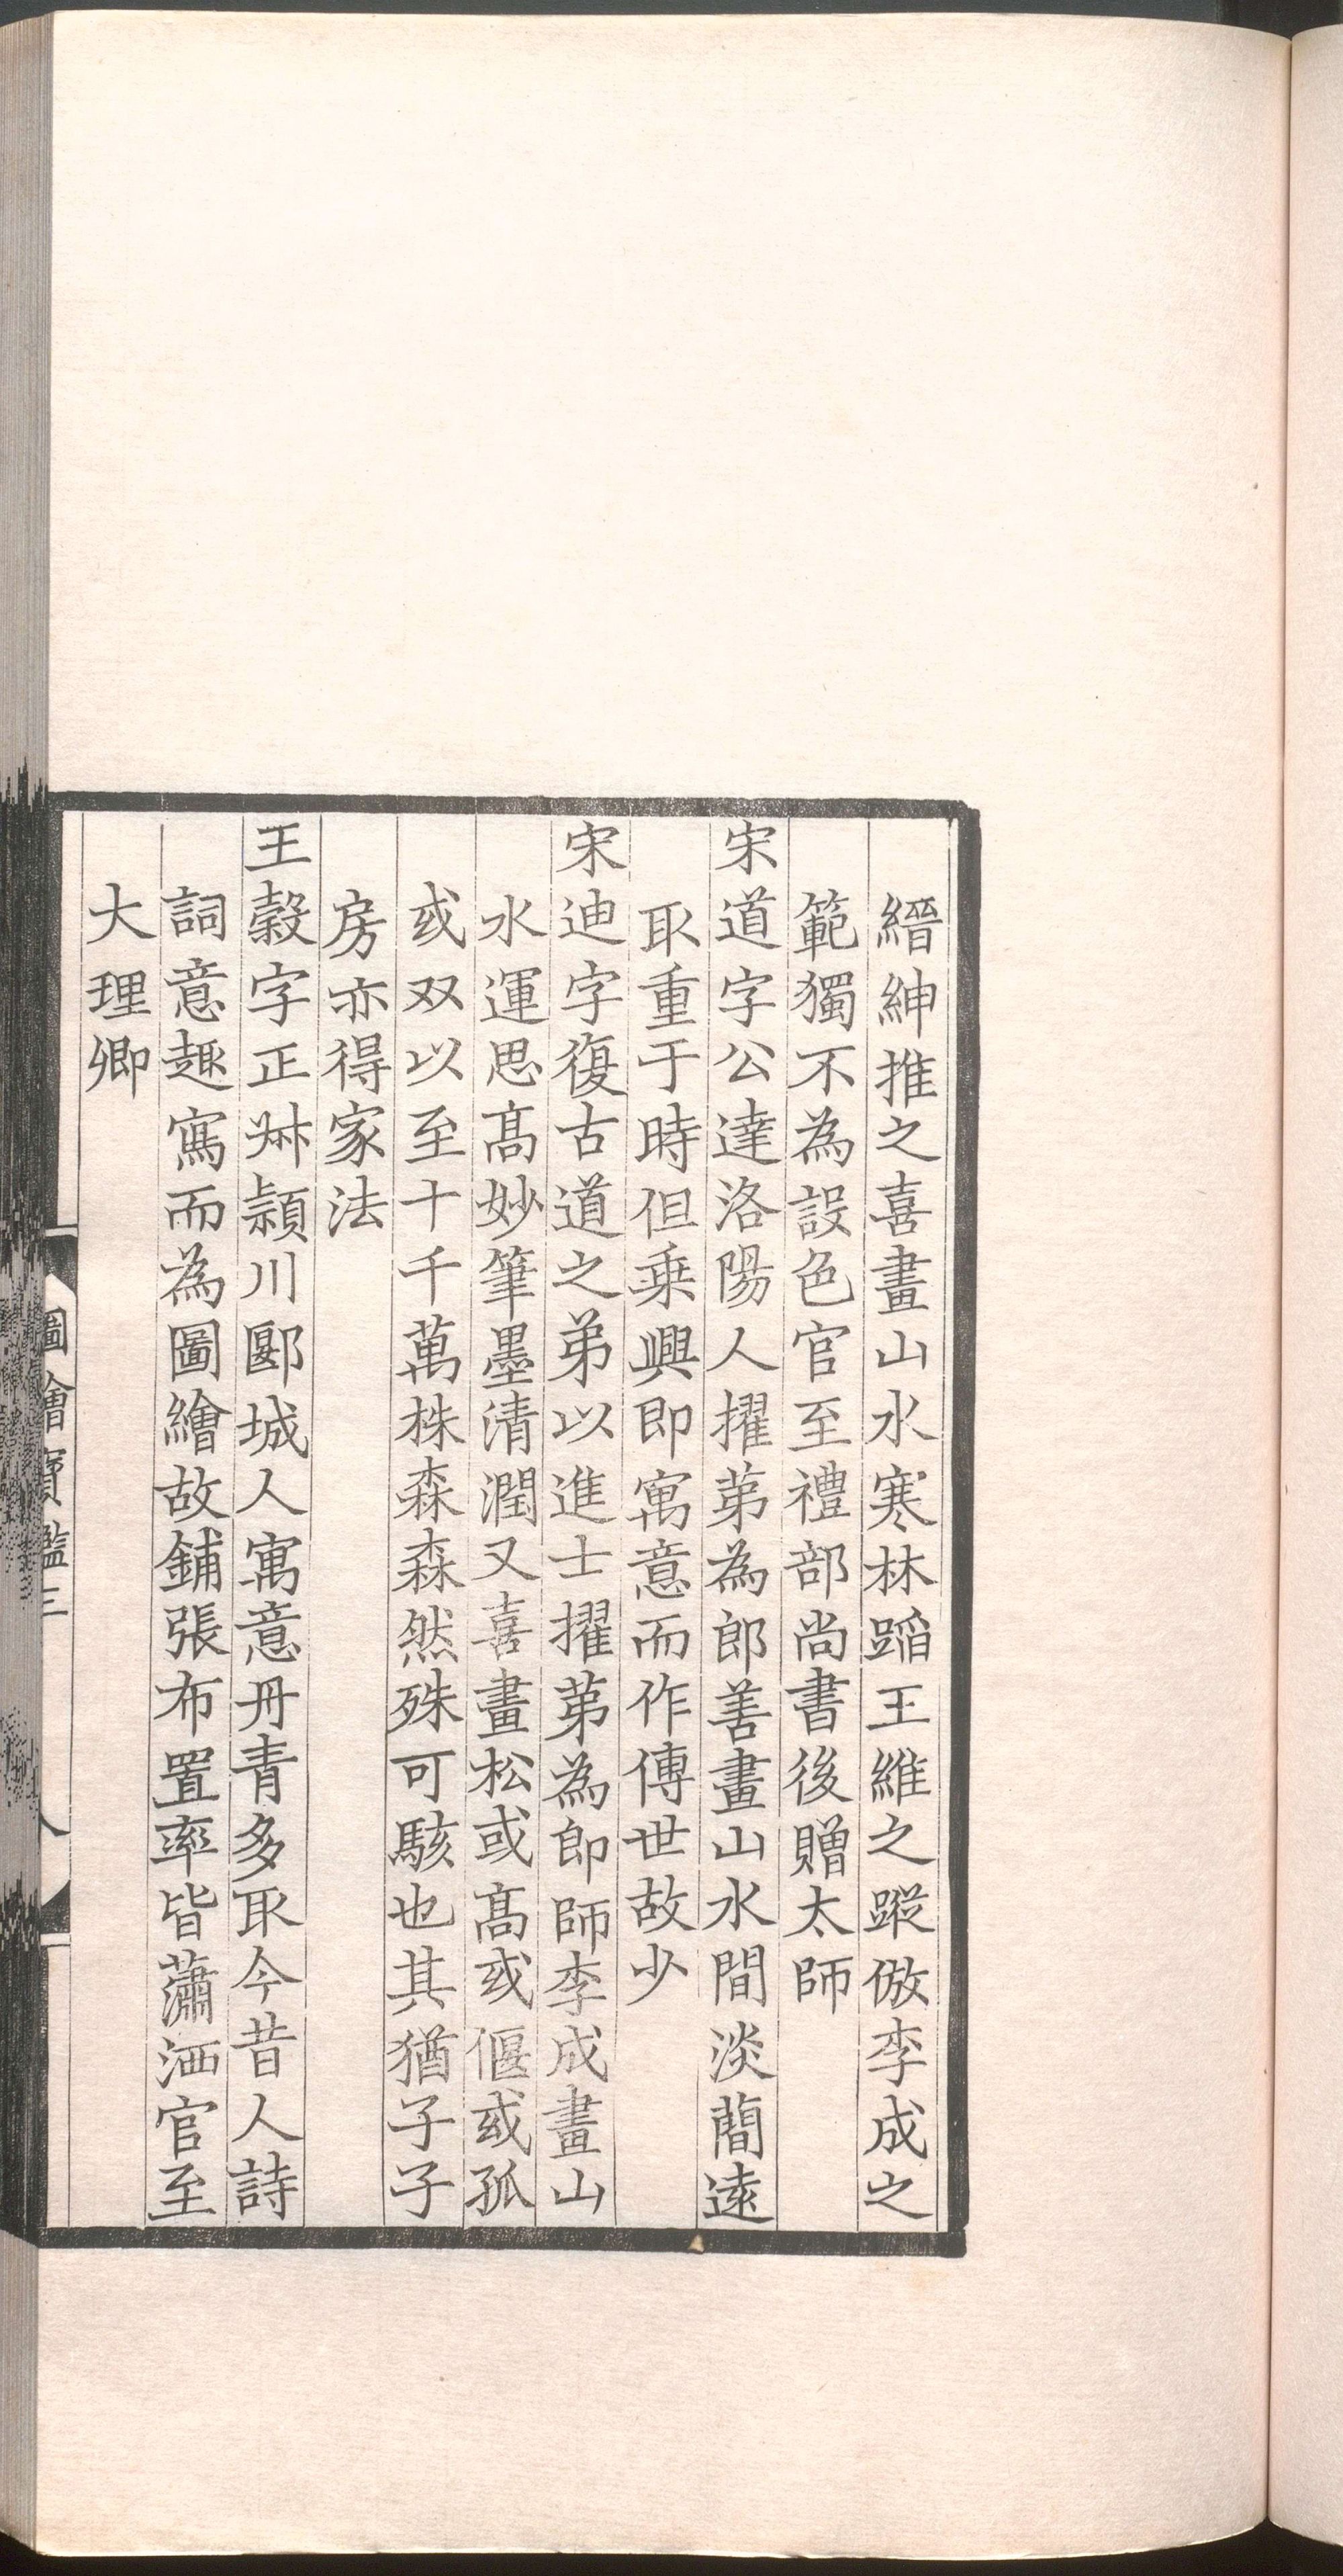 縉紳推之喜畫山水寒林蹈王維之蹤倣李成之
範獨不為設色官至禮部尚書後贈太師
宋道字公達洛陽人擢苐為郎善畫山水間淡蕳遠
取重于時但乗興即寓意而作傳世故少
宋迪字復古道之弟以進士擢苐為郎師李成畫山
水運思髙妙筆墨清潤又喜畫松或髙或偃或孤
或双以至十千萬株森森然殊可駭也其猶子子
房亦得家法
王糓字正叔頴川郾城人寓意丹青多取今昔人詩
詞意趣寫而為圖繪故鋪張布置率皆蕭洒官至
大理卿
圖繪寶鑑三
八